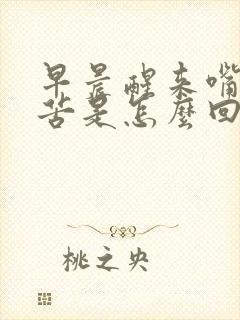 早晨醒来嘴
苦是怎麼回
桃之央